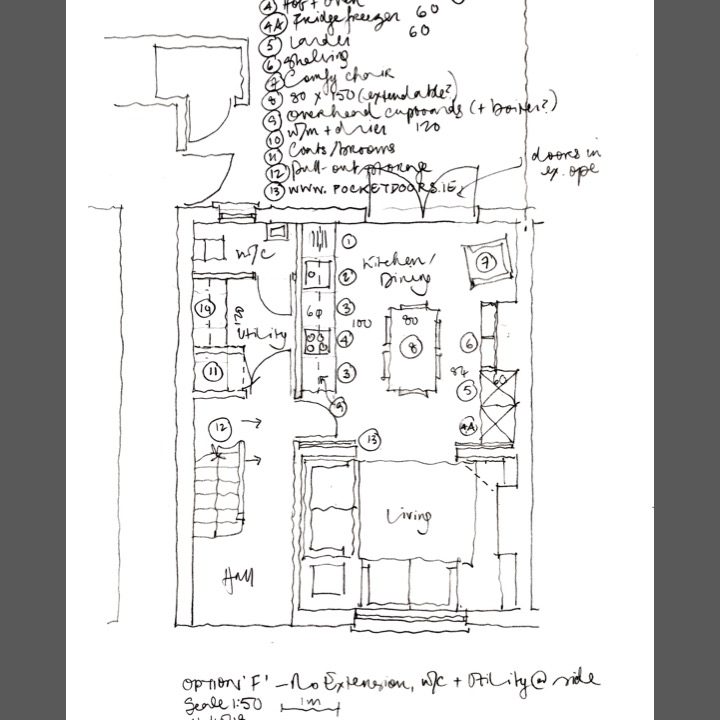 ④ Hob + Oven
④A Fridge freezer 60
⑤ Larder 60
⑥ Shelving
⑦ Comfy chair
⑧ 80 x 150 (extendable?)
⑨ overhead cupboards (+ boiler?)
⑩ w/m + drier 120
⑪ Coats/brooms
⑫ Pull-out storage
⑬ WWW.POCKETDOORS.IE
doors in
ex. ope
W/C
①
Kitchen/
Dining
⑦
②
⑩
120
60
③
100
80
Utility
④
⑧
⑥
⑪
③
84
60
⑤
⑨
⑫
④A
⑬
Living
Hall
OPTION 'F' - No Extension, W/C + Utility @ side
Scale 1:50 1m